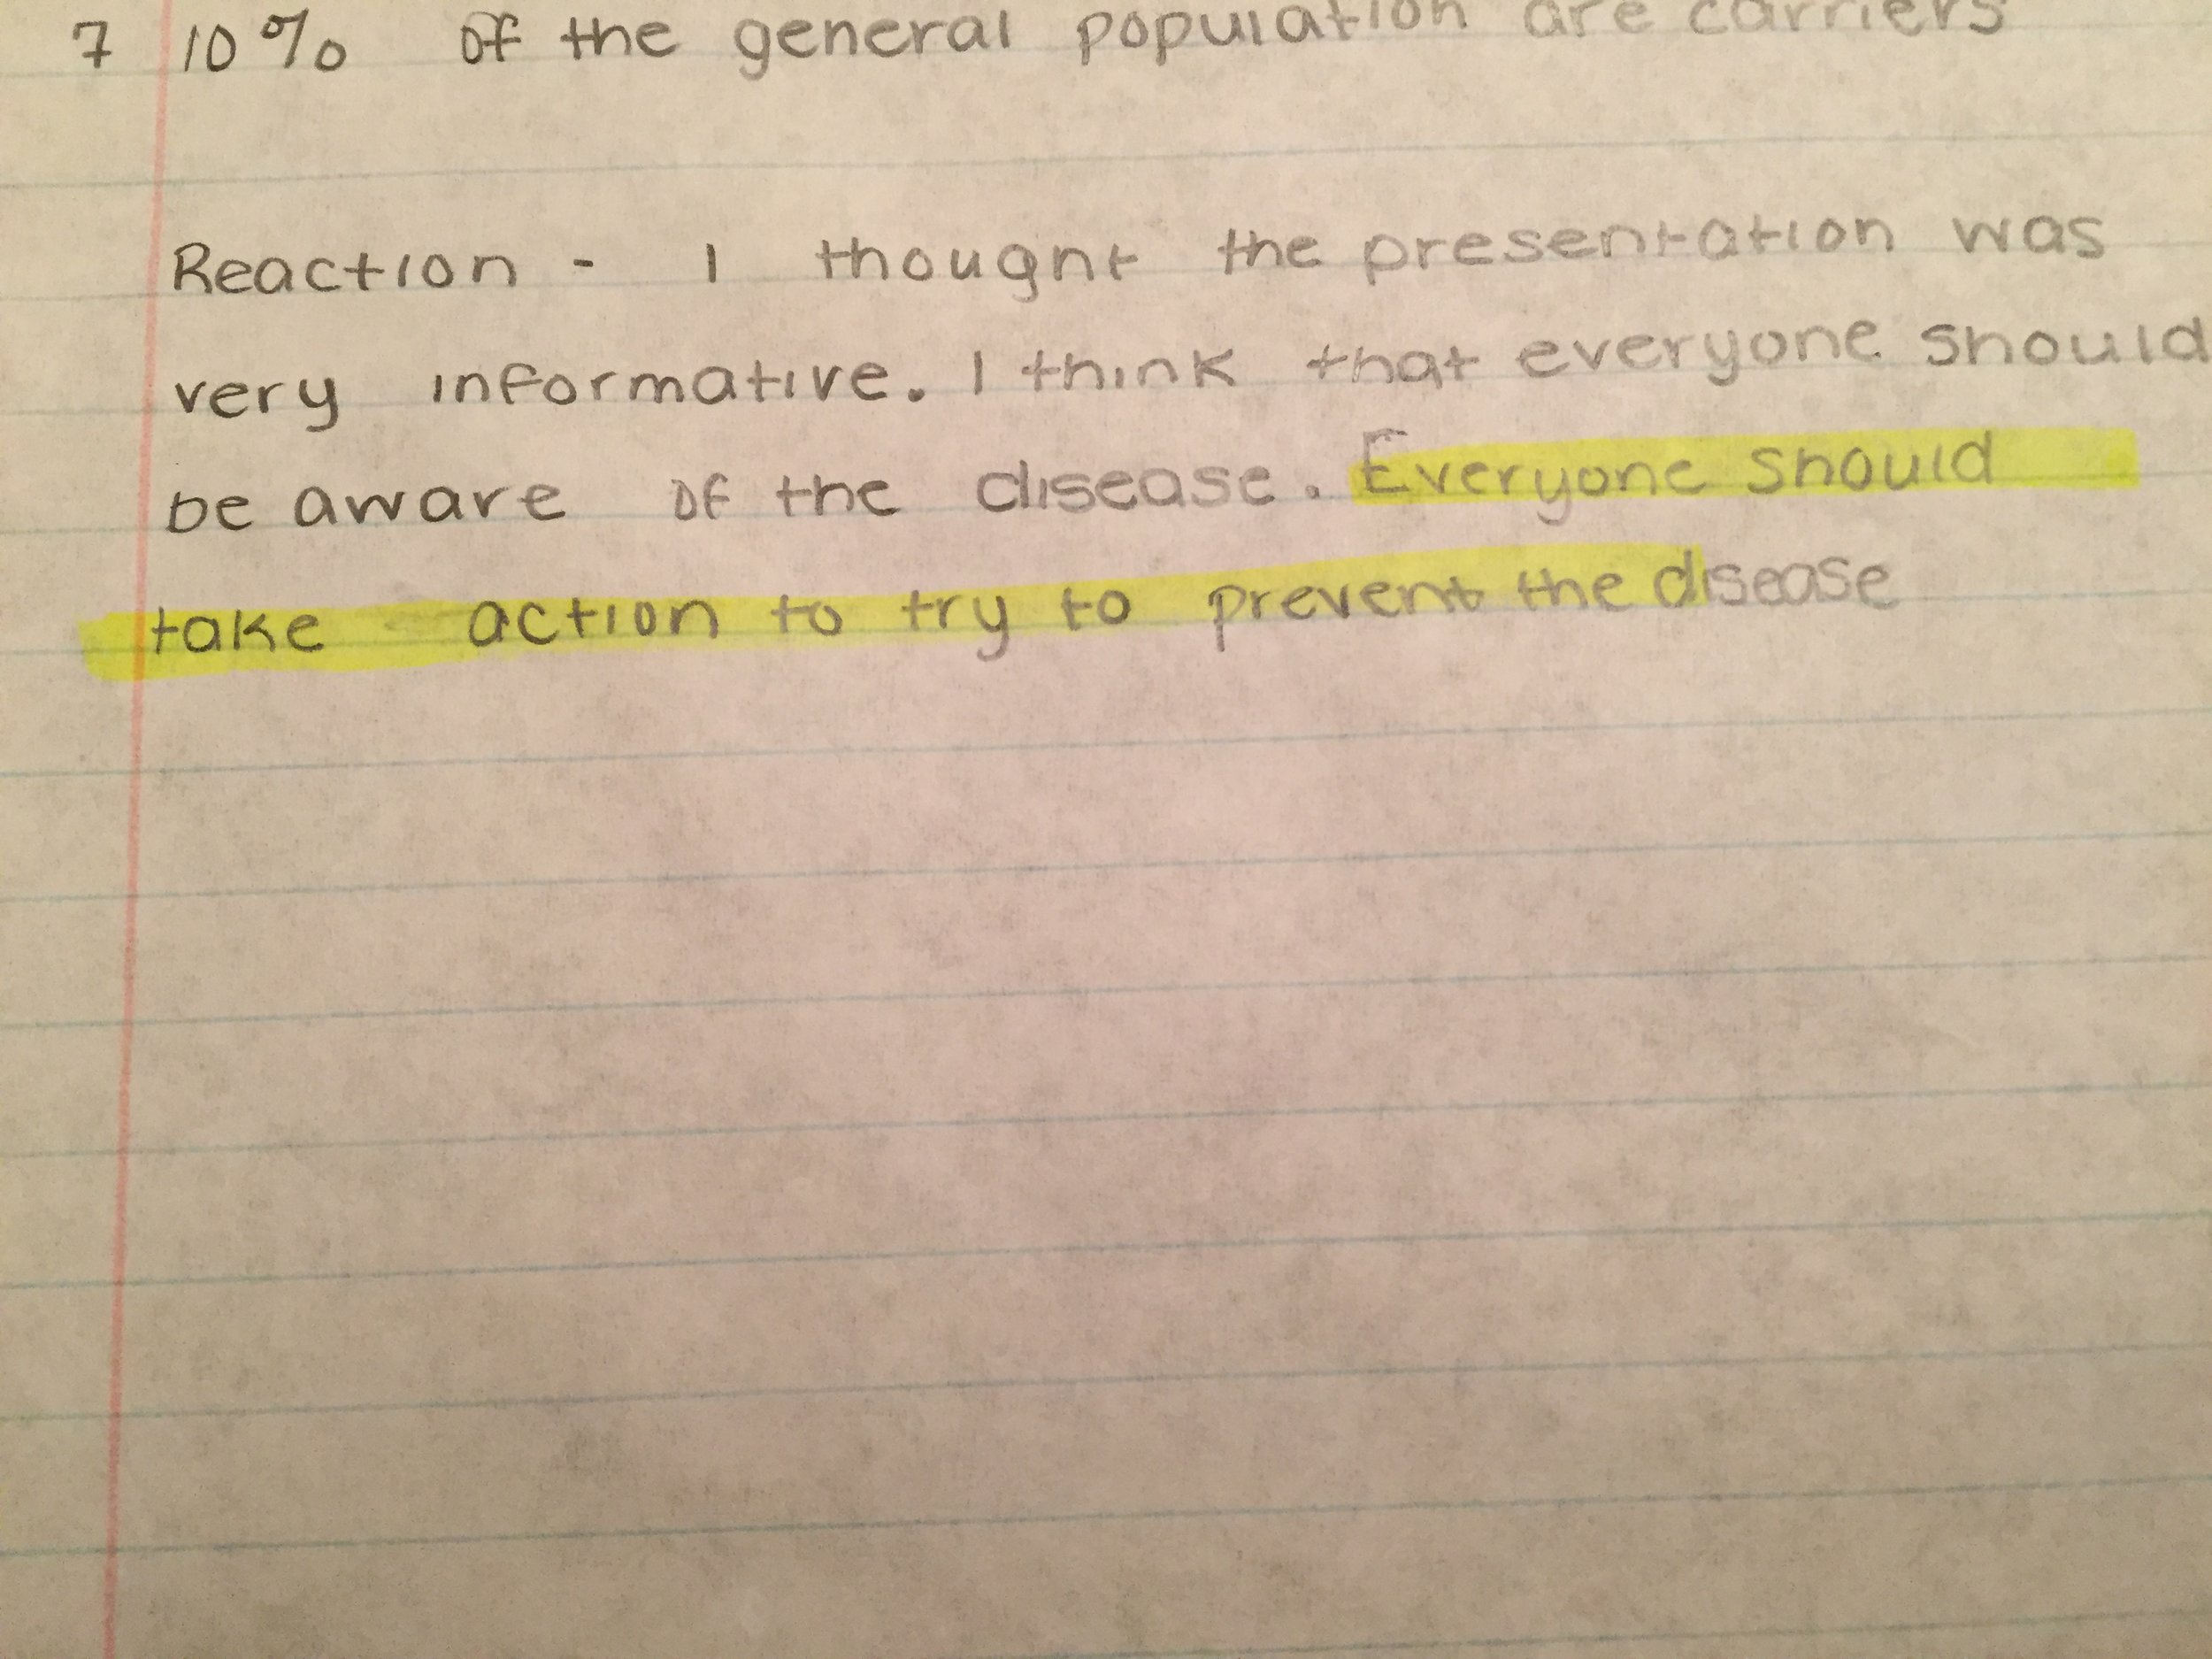 7 10% of the general population are carriers
Reaction - I thought the presentation was
very informative. I think that everyone should
be aware of the disease. Everyone should
take action to try to prevent the disease